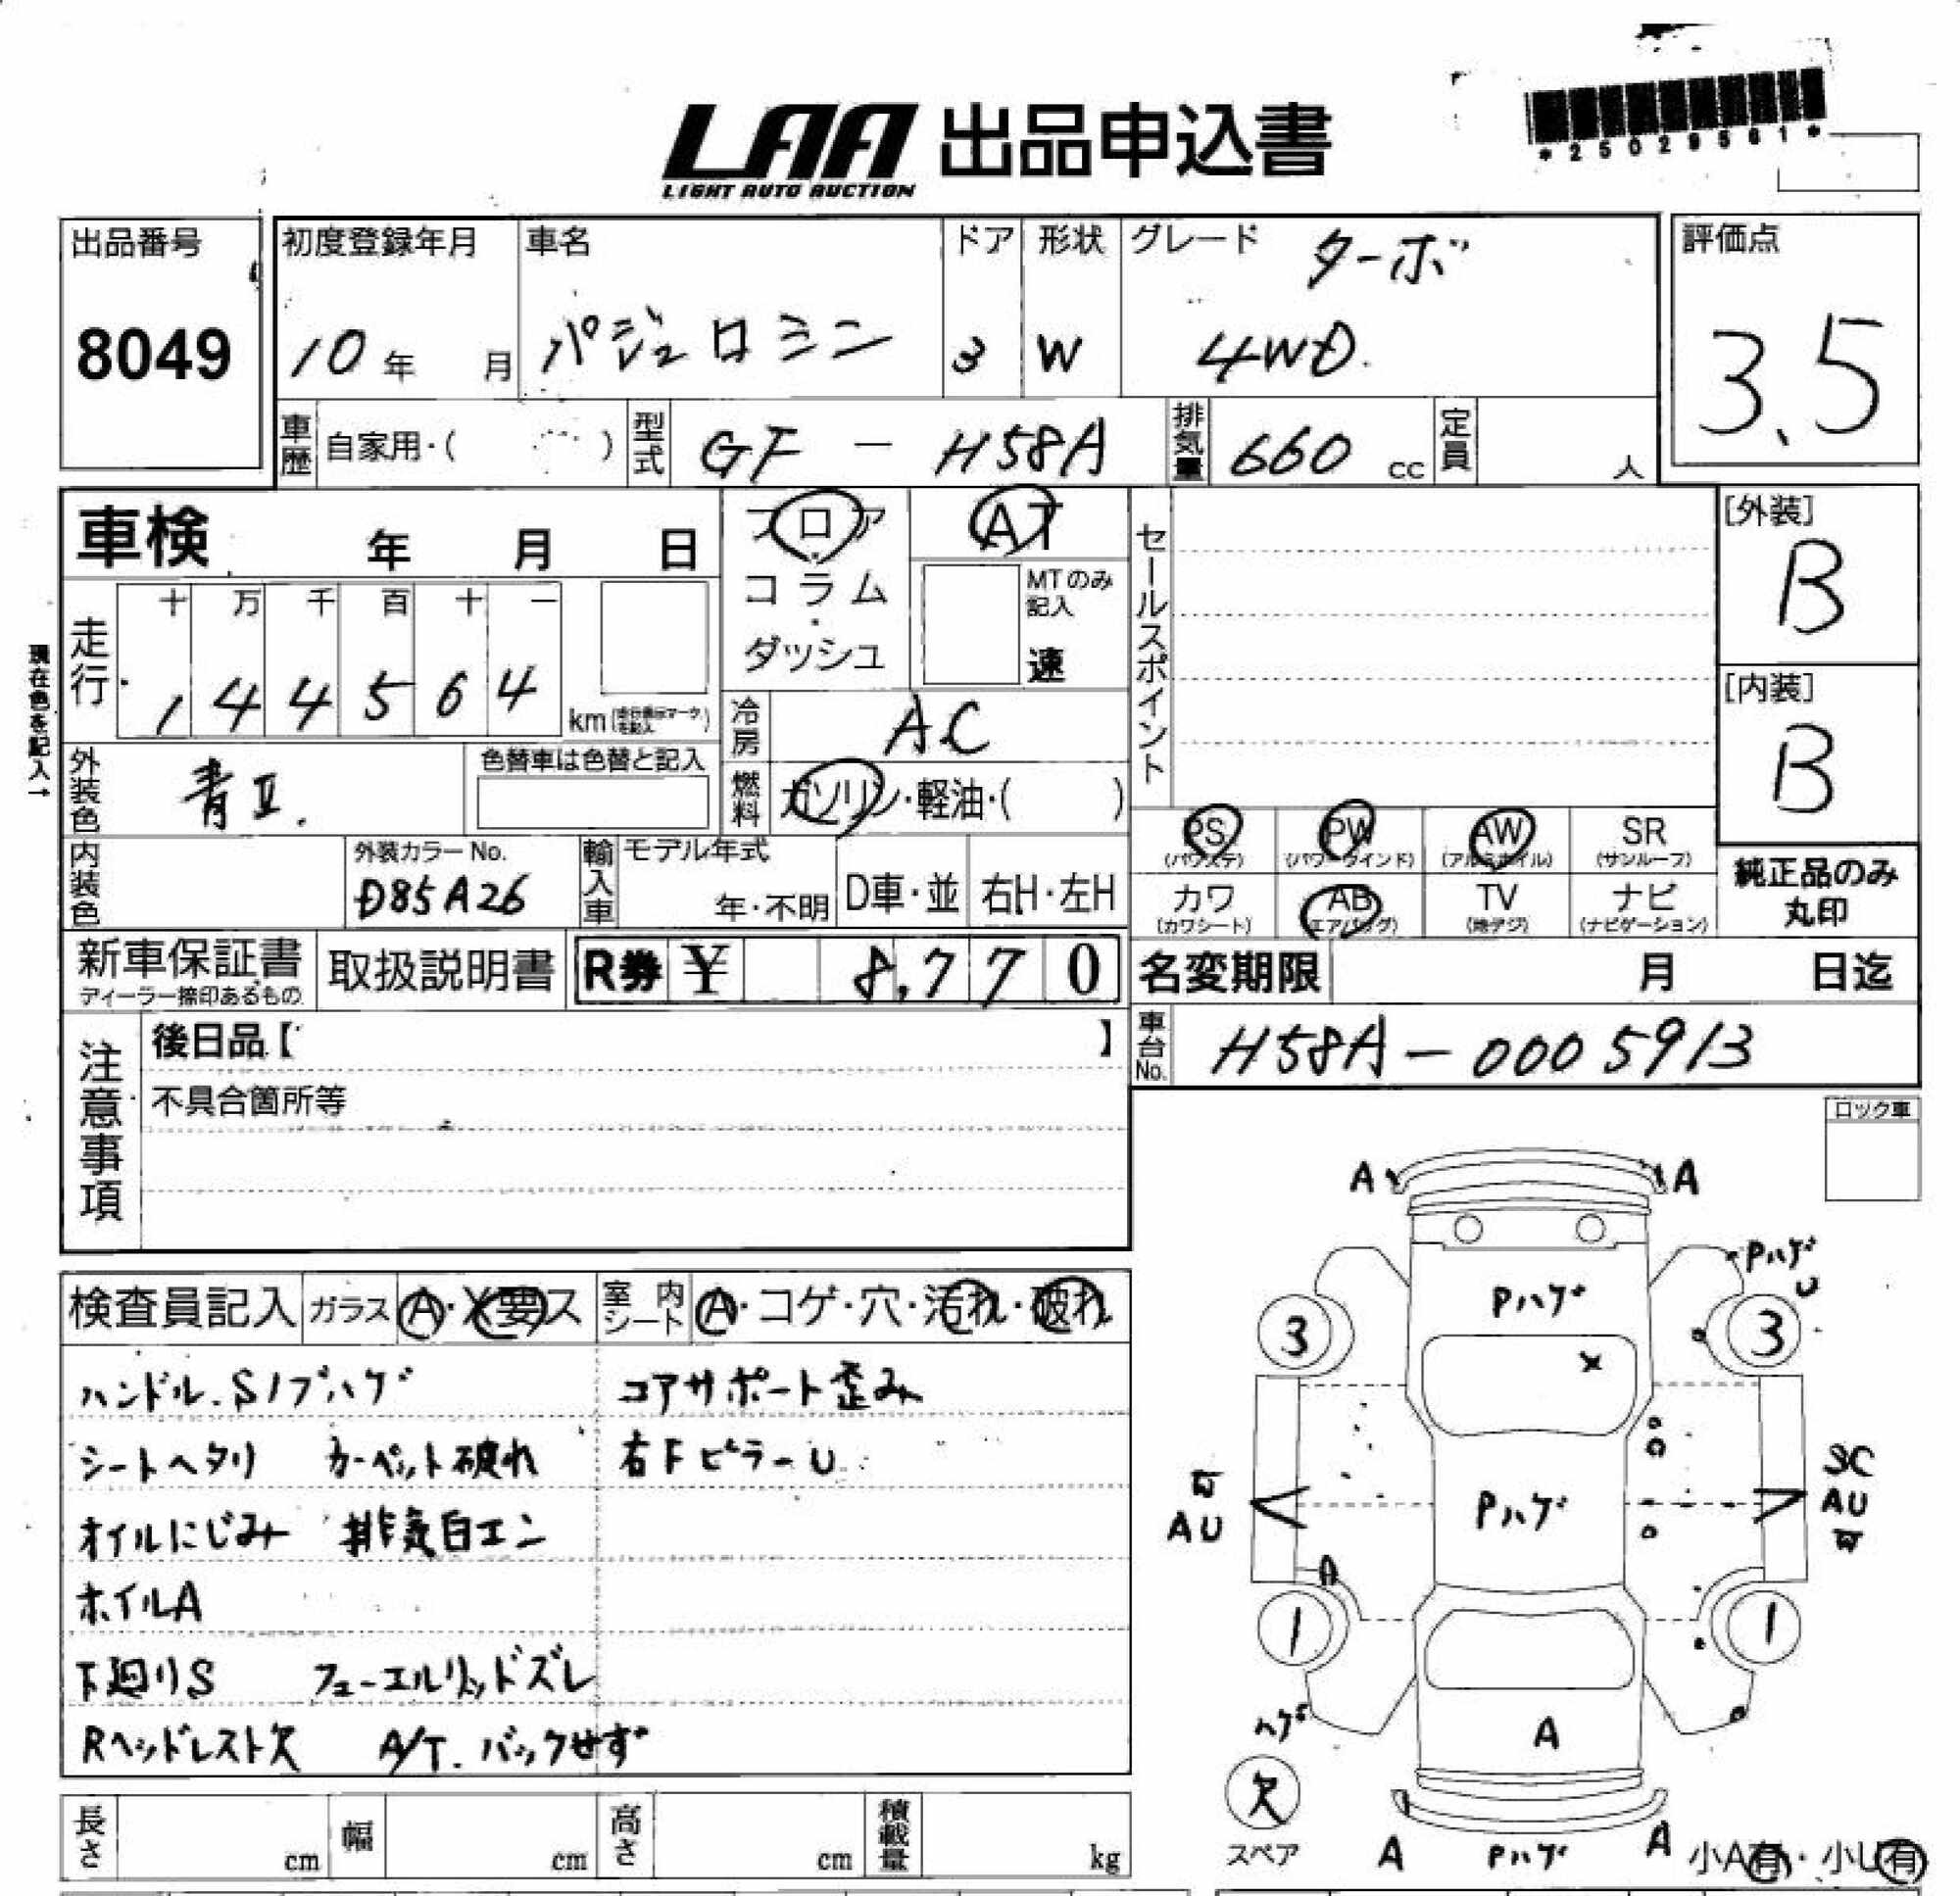 LAA 出品申込書
LIGHT AUTO AUCTION
*25029561*
出品番号
8049
初度登録年月
10年 月
車名
パジェロミニ
ドア
3
形状
W
グレード
ターボ
4WD.
評価点
3.5
車歴 自家用・( )
型式 GF - H58A
排気量 660 cc
定員 人
車検 年 月 日
フロア
・
コラム
・
ダッシュ
AT
MTのみ
記入
速
セールスポイント
[外装]
B
[内装]
B
現在色を記入→
走行
十 万 千 百 十 一
1 4 4 5 6 4
km
冷房 AC
燃料 ガソリン・軽油・( )
外装色 青II.
色替車は色替と記入
内装色
外装カラーNo.
D85A26
輸入車
モデル年式
年・不明
D車・並
右H・左H
PS
(パワステ)
PW
(パワーウインド)
AW
(アルミホイル)
SR
(サンルーフ)
カワ
(カワシート)
AB
(エアバッグ)
TV
(地デジ)
ナビ
(ナビゲーション)
純正品のみ
丸印
新車保証書
ディーラー捺印あるもの
取扱説明書
R券 ¥ 8,770
名変期限 月 日迄
車台No. H58A-0005913
注意事項
後日品【 】
不具合箇所等
ロック車
検査員記入
ガラス A・X要ス
室内シート A・コゲ・穴・汚れ・破れ
ハンドル.Sノブハゲ
コアサポート歪み
シートヘタリ カーペット破れ
右Fピラーu
オイルにじみ 排気白エン
ホイルA
下廻りS フューエルリッドズレ
Rヘッドレスト欠 A/T. バックせず
A A
Pハゲ
U
Pハゲ
3 3
×
Pハゲ
AU
SC
AU
A
1 1
ハゲ
A
欠
スペア
A Pハゲ A
小A有・小U有
長さ cm
幅 cm
高さ cm
積載量 kg